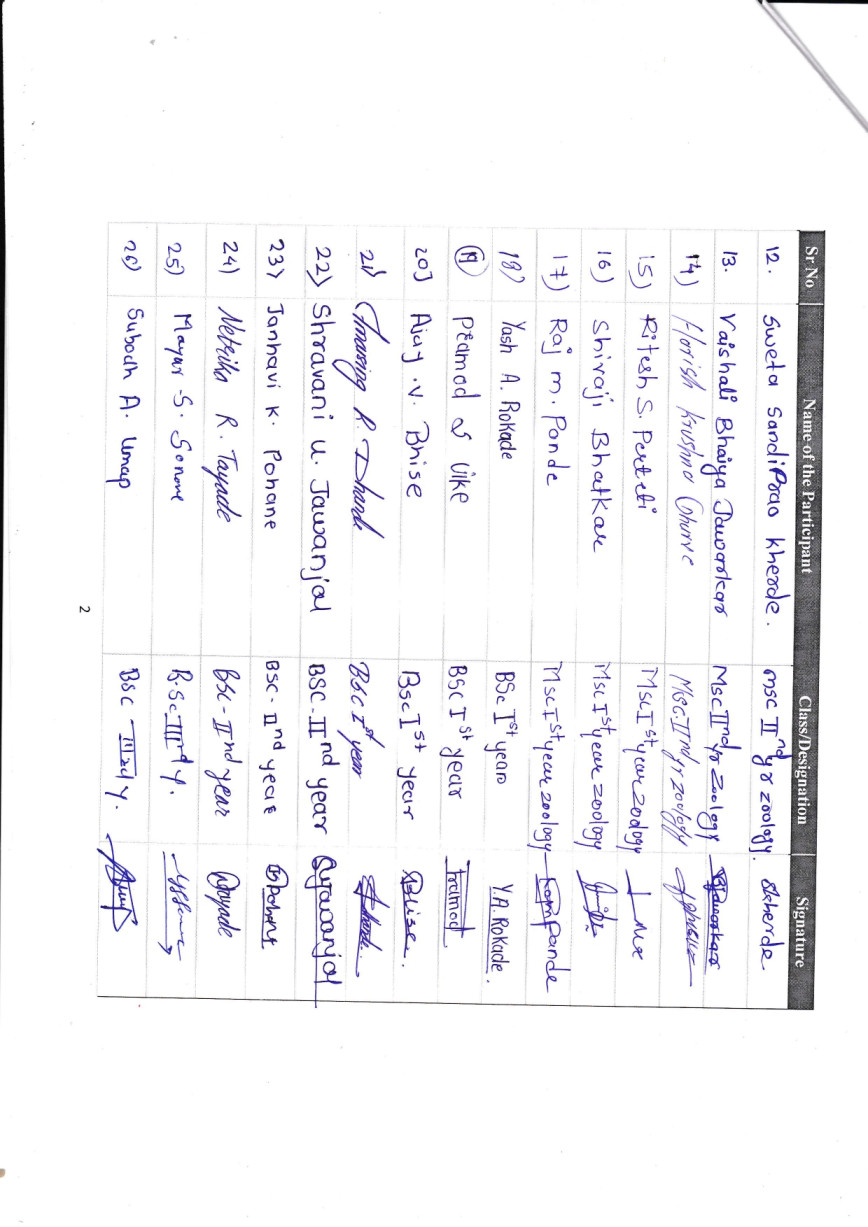 Sr No Name of the Participant Class/Designation Signature
12. Sweta Sandiprao Kherde. MSC IInd yr zoology. Skherde
13. Vaishali Bhaiya Jawarkar MSC IInd yr zoology
14) Harish Krushna Ghurve MSC. IInd yr zoology
15) Ritesh S. Perteti MSC Ist year zoology
16) Shivaji Bhatkar MSC Ist year zoology
17) Raj M. Pande MSC Ist year zoology Pande
18) Yash A. Rokade BSc Ist year Y.A. Rokade.
19 Pramod S Uike BSC Ist year Pramod
20) Ajay .V. Bhise BSC Ist year Bhise.
21) R. Dhande BSC Ist year
22) Shravani U. Jawanjal BSC-IInd year Sujawanjal
23) Janhavi K. Pohane BSC-IInd year
24) R. Tayade BSC-IInd year
25) Mayur S. Sonone B.Sc IIIrd y.
26) Subodh A. Umap BSC - IIIrd y.
2